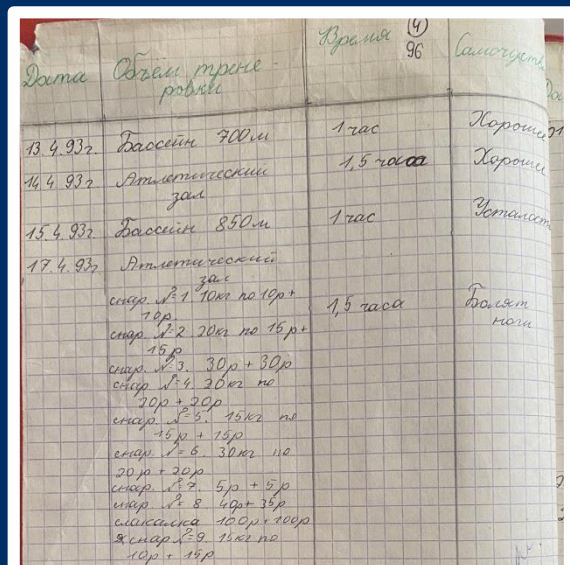 Дата Объём трене- Время (4) Самочувств
ровки 96
13.4.93г. Бассейн 700м 1 час Хорошее
14.4.93г. Атлетический 1,5 часа Хорошее
зал
15.4.93г Бассейн 850м 1 час Усталость
17.4.93г. Атлетический
зал
снар. №1. 10кг по 10р+ 1,5 часа Болят
10р. ноги
снар. №2. 20кг по 15р+
15р
снар. №3. 30р + 30р
снар. №4. 20кг по
20р + 20р
снар. №5. 15кг по
15р + 15р
снар. №6. 30кг по
20р + 20р
снар. №7. 5р + 5р
снар. №8 40р + 35р
скакалка 100р + 100р
снар №9. 15кг по
10р + 15р